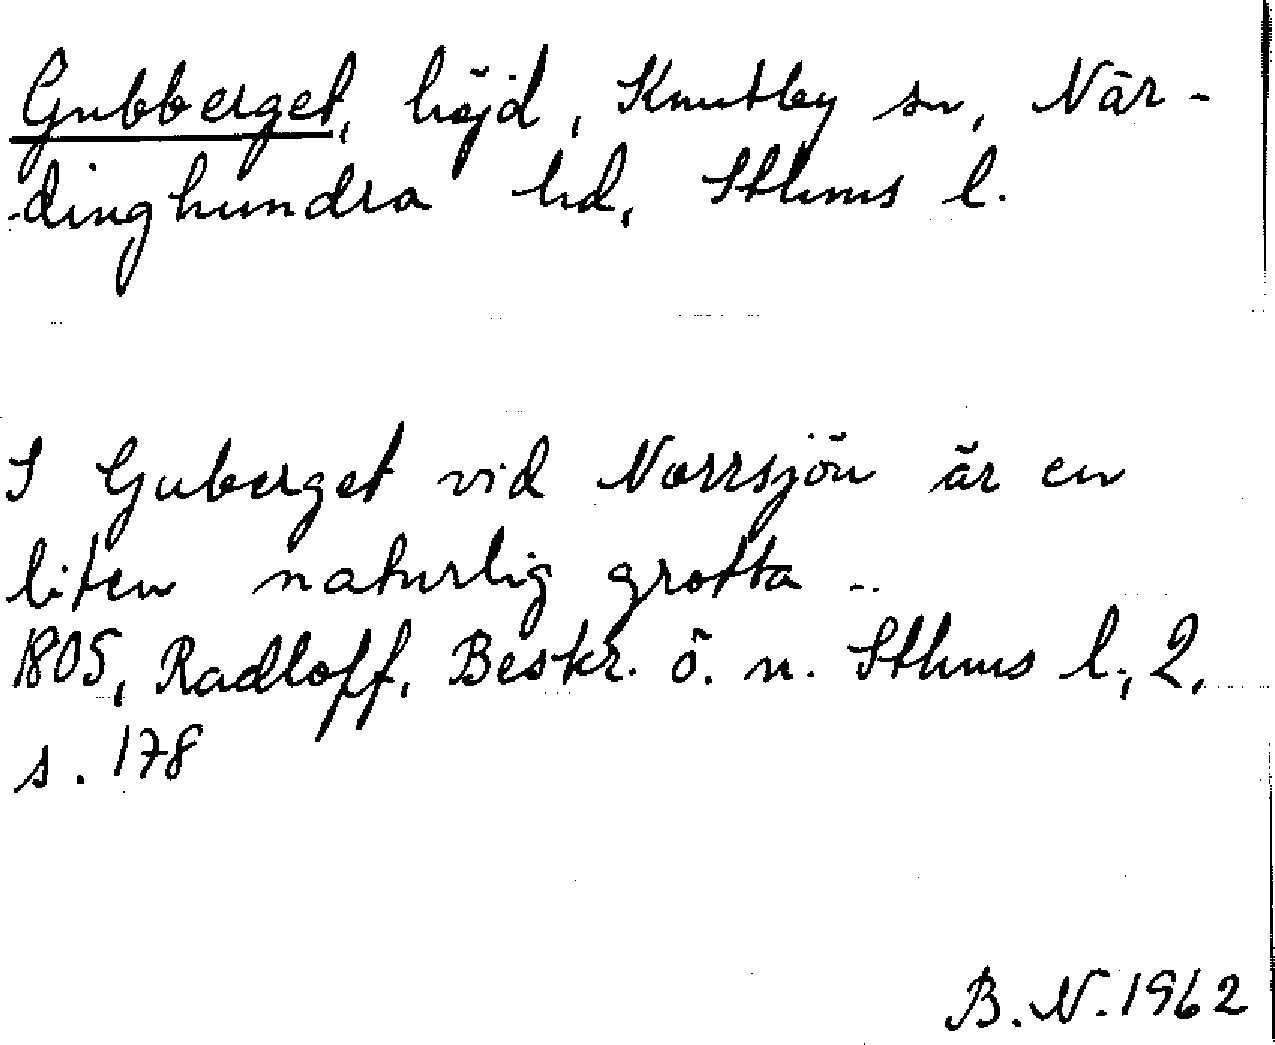 Gubberget, höjd, Knutby sn, När-
dinghundra hd, Sthms l.
I Guberget vid Norrsjön är en
liten naturlig grotta ..
1805, Radloff, Beskr. ö. n. Sthms l., 2,
s. 178
B. N. 1962